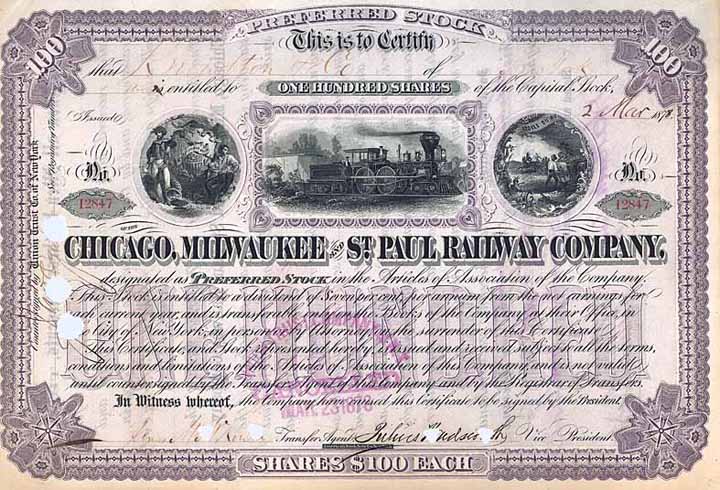 PREFERRED STOCK
100
100
This is to Certify
that of
is entitled to ONE HUNDRED SHARES of the Capital Stock,
Issued
2 Mar 1878
No.
No.
12847
12847
OF THE
CHICAGO, MILWAUKEE AND ST. PAUL RAILWAY COMPANY,
designated as PREFERRED STOCK in the Articles of Association of the Company.
This Stock is entitled to a dividend of Seven per cent. per annum from the net earnings for
each current year, and is transferable on the Books of the Company at their Office, in
the City of New York, in person or by Attorney on the surrender of this Certificate.
This Certificate, and Stock represented hereby, is issued and received subject to all the terms,
conditions and limitations of the Articles of Association of this Company, and is not valid
until countersigned by the Transfer Agent of this Company and by the Registrar of Transfers.
In Witness whereof, the Company have caused this Certificate to be signed by the President.
Transfer Agent Julius Wadsworth Vice President.
SHARES $100 EACH
100
100
Countersigned by Union Trust Co. of New York
MAR. 23 1878